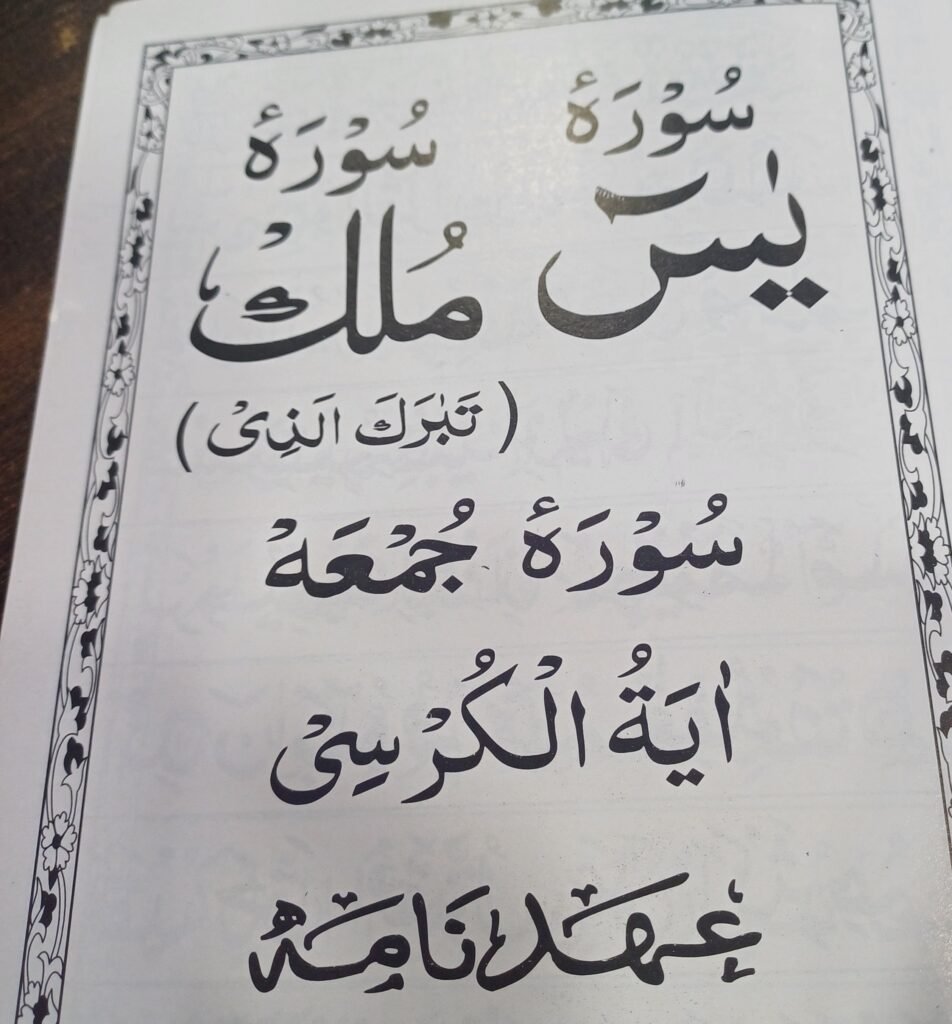 سُوْرَۂ یٰسٓ
سُوْرَۂ مُلکْ
(تَبٰرَكَ الَذِیْ)
سُوْرَۂ جُمْعَہْ
اٰیَۃُ الْکُرْسِیْ
عہَدنَامَہْ